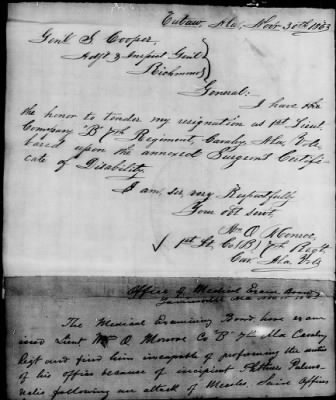 Eutaw, Ala, Novr 30th 1863
Genl S. Cooper,
Adjt & Inspect Genl
Richmond
General:
I have the
the honor to tender my resignation as 1st Lieut.
Company "B" 7th Regiment, Cavalry Ala, Vols
based upon the annexed Surgeons Certifi-
cate of Disability.
I am, sir, very Respectfully
Your obt servt,
Wm O. Monroe,
1st Lt, Co (B) 7th Regt.
Cav. Ala Vols
Office of Medical Exam Board
Ala Nov
The Medical Examining Bord have exam
ined Lieut Wm O. Monroe Co "B" 7th Ala Cavalry
Regt and find him incapable of performing the duties
of his office because of incipient Pthisis Pulmo-
nalis following an attack of Measles. Said Officer